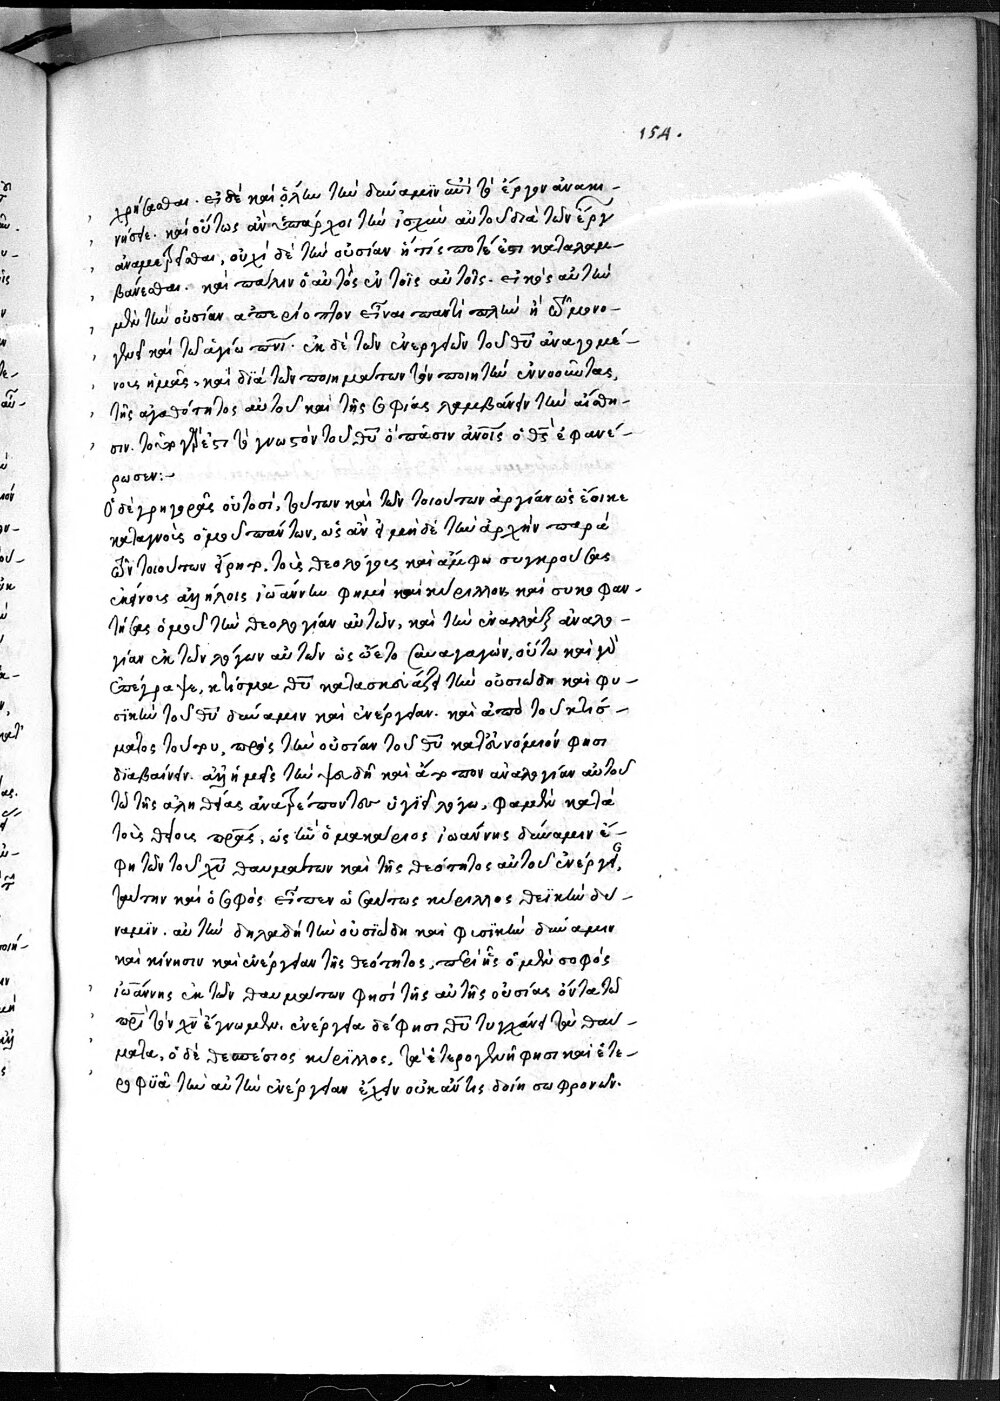 154.
χρήσασθαι. εἰ δὲ καὶ ὅλην τὴν δύναμιν ἐπὶ τὸ ἔργον ἀνακι-
νήσειε. καὶ οὕτως ἂν ὑπάρχοι τὴν ἰσχὺν αὐτοῦ διὰ τῶν ἔργων
ἀναμετρεῖσθαι, οὐχὶ δὲ τὴν οὐσίαν ἥτις ποτέ ἐστι καταλαμ-
βάνεσθαι. καὶ πάλιν ὁ αὐτὸς ἐν τοῖς αὐτοῖς. εἰκὸς αὐτὴν
μὲν τὴν οὐσίαν ἀπερίοπτον εἶναι παντὶ πλὴν ἢ τῷ μονο-
γενεῖ καὶ τῷ ἁγίῳ πνι. ἐκ δὲ τῶν ἐνεργειῶν τοῦ θυ ἀναγομέ-
νοις ἡμᾶς, καὶ διὰ τῶν ποιημάτων τὸν ποιητὴν ἐννοοῦντας,
τῆς ἀγαθότητος αὐτοῦ καὶ τῆς σοφίας λαμβάνειν τὴν αἴσθη-
σιν. τοῦτο γάρ ἐστι τὸ γνωστὸν τοῦ θυ ὃ πᾶσιν ἀνοις ὁ θς ἐφανέ-
ρωσεν:-
Ὁ δὲ γρηγορᾶς οὑτοσὶ, τούτων καὶ τῶν τοιούτων ἀργίαν ὡς ἔοικε
καταγνοὺς ὁμοῦ πάντων, ὡς ἂν εἰ μηδὲ τὴν ἀρχὴν παρά
των τοιούτων εἴρητο τοῖς θεολόγοις καὶ ἄμφω συγκρούσας
ἐκείνοις ἀλλήλοις ἰωάννην φημὶ καὶ κύριλλον, καὶ συκοφαν-
τήσας ὁμοῦ τὴν θεολογίαν αὐτῶν, καὶ τὴν ἐναλλὰξ ἀναλο-
γίαν ἐκ τῶν λόγων αὐτῶν ὡς ᾤετο συναγαγών, οὕτω καὶ γὰρ
ἐπέγραψε, κτίσμα θυ κατασκευάζει τὴν οὐσιώδη καὶ φυ-
σϊκὴν τοῦ θυ δύναμιν καὶ ἐνέργειαν. καὶ ἀπὸ τοῦ κτίσ-
ματος τούτου, πρὸς τὴν οὐσίαν τοῦ θυ φησι
διαβαίνειν. ἀλλ' ἡμεῖς τὴν ψευδῆ καὶ ἄτοπον ἀναλογίαν αὐτοῦ
τῷ τῆς ἀληθείας ἀνατρέποντες ὑγιεῖ λόγῳ, φαμὲν κατὰ
τοὺς θείους πρας, ὡς ἣν ὁ μακάριος ἰωάννης δύναμιν ἔ-
φη τῶν τοῦ χυ θαυμάτων καὶ τῆς θεότητος αὐτοῦ ἐνέργειαν,
ταύτην καὶ ὁ σοφὸς εἶπεν ὡσαύτως κύριλλος θεϊκὴν δύ-
ναμϊν. αὐτὴν δηλαδὴ τὴν οὐσϊώδη καὶ φυσϊκὴν δύναμιν
καὶ κίνησιν καὶ ἐνέργειαν τῆς θεότητος, περὶ ἧς ὁ μὲν σοφός
ἰωάννης ἐκ τῶν θαυμάτων φησὶ τῆς αὐτῆς οὐσίας ὄντα τῷ
πρι τὸν χν ἔγνωμεν. ἐνέργεια δὲ φησι θυ τυγχάνει τὰ θαύ-
ματα, ὁ δὲ θεσπέσιος κύριλλος, τὰ ἑτερογενῆ φησι καὶ ἑτε-
ροφυᾶ τὴν αὐτὴν ἐνέργειαν ἔχειν οὐκ ἄν τις δοίη σωφρονῶν.